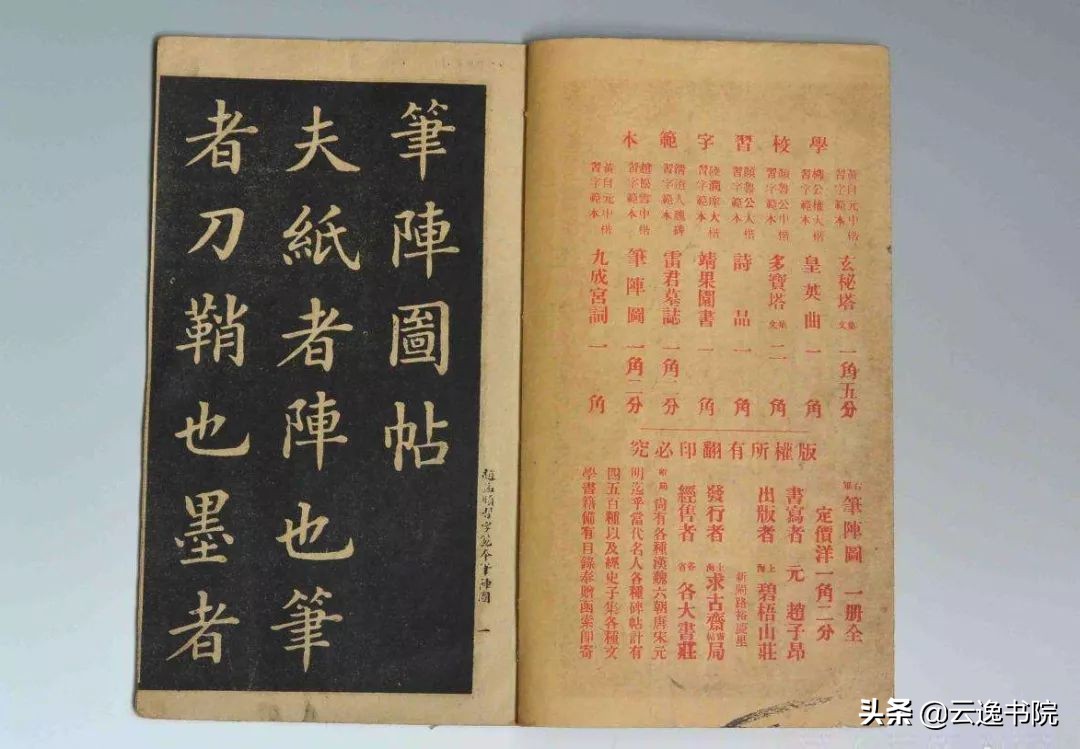 筆陣圖帖
夫紙者陣也筆
者刀鞘也墨者
趙孟頫習字範本筆陣圖 一
學校習字範本
黃自元中楷習字範本 玄秘塔集文 一角五分
柳公權大楷習字範本 皇英曲 一角
顏魯公中楷習字範本 多寶塔集文 二角
顏魯公大楷習字範本 詩品 一角
陸潤庠大楷習字範本 靖果園書 一角
習字範本 雷君墓誌 一角二分
趙松雪中楷習字範本 筆陣圖 一角二分
黃自元中楷習字範本 九成宮詞 一角
版權所有翻印必究
筆陣圖 一册全
定價洋一角二分
書寫者 元 趙子昂
出版者 上海 碧梧山莊
新閘路裕慶里
發行者 上海 求古齋書帖局
經售者 各省 各大書莊
尚有各種漢魏六朝唐宋元
明迄乎當代名人各種碑帖計有
四五百種以及經史子集各種文
學書籍備有目錄奉贈函索即寄
头条 @云逸书院